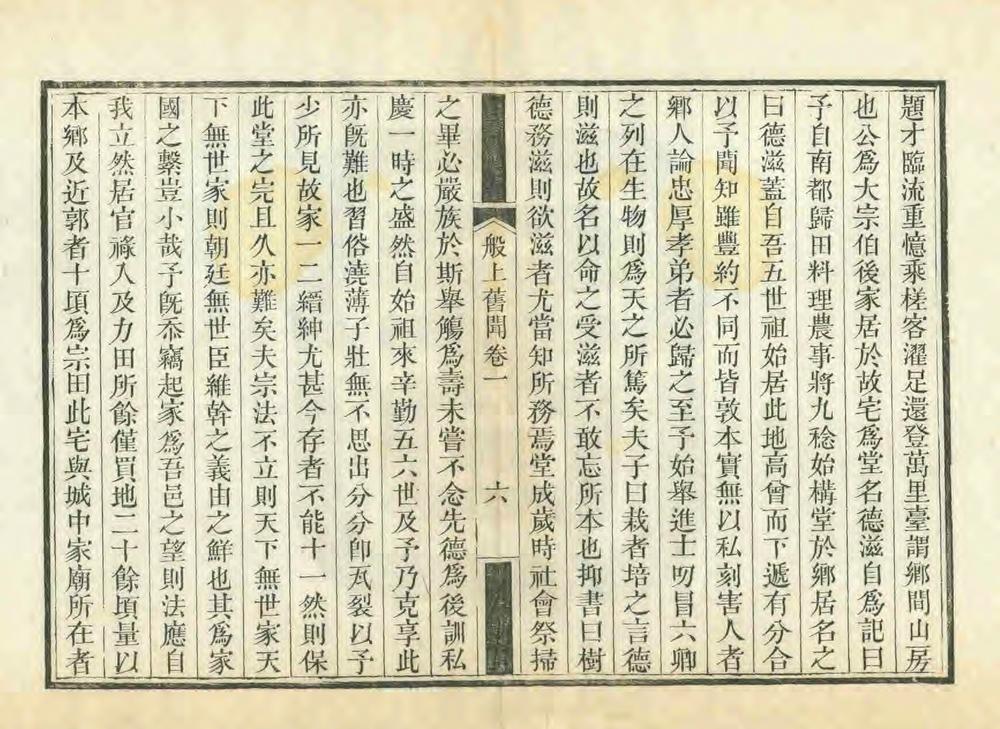 題才臨流重憶乘槎客濯足還登萬里臺謂鄉間山房
也公爲大宗伯後家居於故宅爲堂名德滋自爲記曰
予自南都歸田料理農事將九稔始構堂於鄉居名之
曰德滋蓋自吾五世祖始居此地高曾而下遞有分合
以予聞知雖豐約不同而皆敦本實無以私刻害人者
鄉人論忠厚孝弟者必歸之至予始舉進士叨冒六卿
之列在生物則爲天之所篤矣夫子曰栽者培之言德
則滋也故名以命之受滋者不敢忘所本也抑書曰樹
德務滋則欲滋者尤當知所務焉堂成歲時社會祭掃
般上舊聞卷一
六
之畢必嚴族於斯舉觴爲壽未嘗不念先德爲後訓私
慶一時之盛然自始祖來辛勤五六世及予乃克享此
亦旣難也習俗澆薄子壯無不思出分分卽瓦裂以予
少所見故家一二縉紳尤甚今存者不能十一然則保
此堂之完且久亦難矣夫宗法不立則天下無世家天
下無世家則朝廷無世臣維幹之義由之鮮也其爲家
國之繫豈小哉予旣忝竊起家爲吾邑之望則法應自
我立然居官祿入及力田所餘僅買地二十餘頃量以
本鄉及近郭者十頃爲宗田此宅與城中家廟所在者